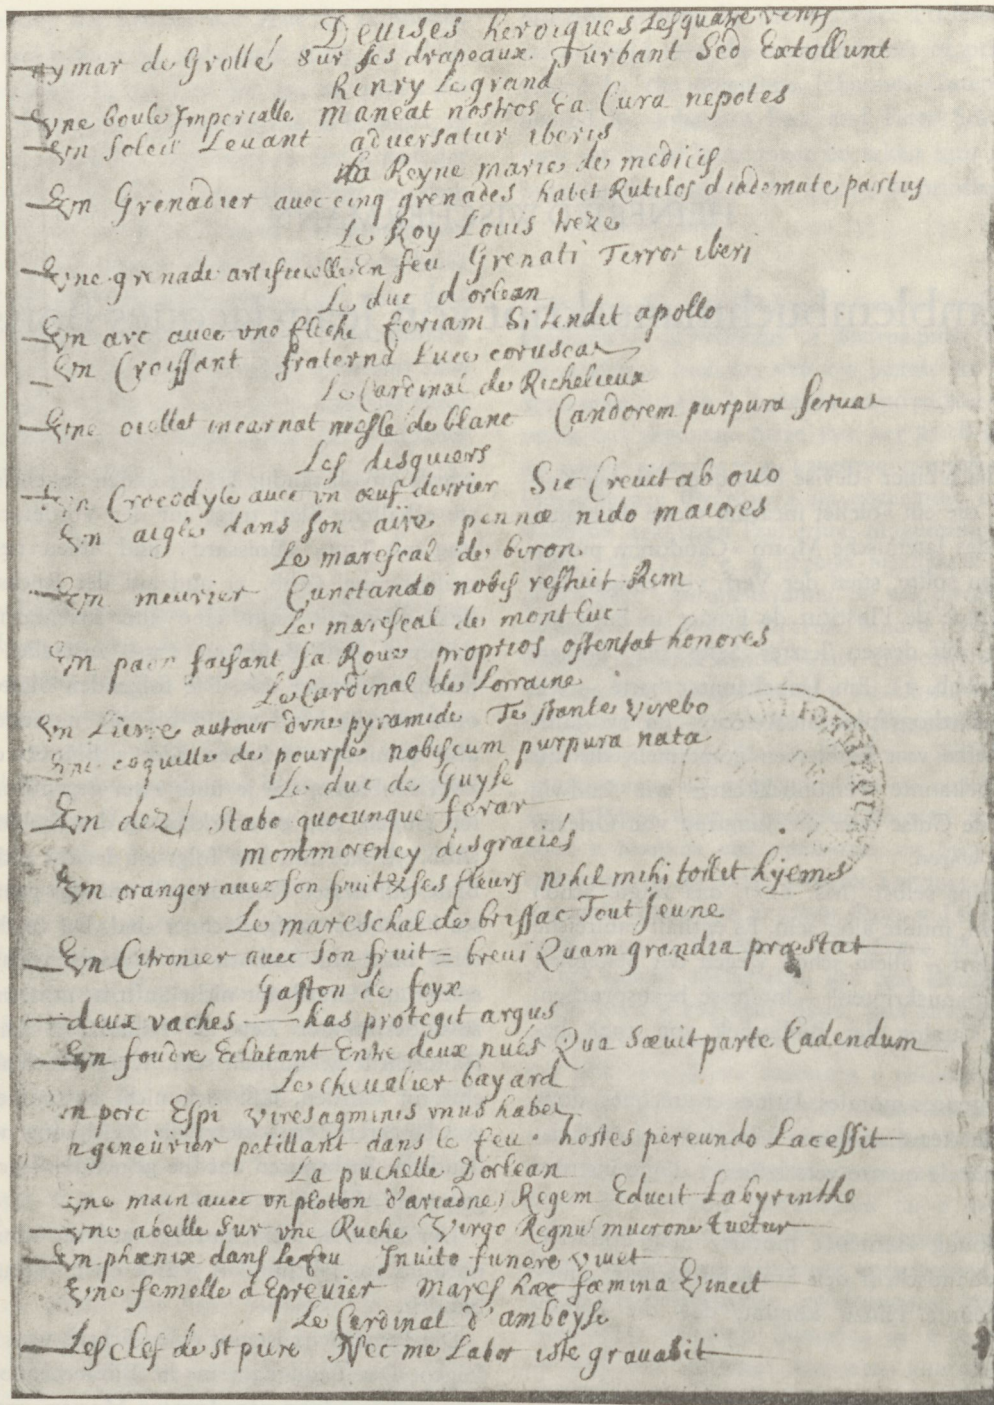 Deuises heroiques Lesquatre vents
aymar de Grollé sur ses drapeaux. Turbant Sed Extollunt
Henry Le grand
Vne boule Imperialle maneat nostros Ea Cura nepotes
Vn Soleil Leuant aduersatur iberis
La Reyne marie de medicis
Vn Grenadier auec cinq grenades habet Rutilos diademate partus
Le Roy Louis treze
Vne grenade artificielle En feu Grenati Terror iberi
Le duc d'orlean
Vn arc auec vne fleche feriam Si tendit apollo
Vn Croissant fraterna Luce coruscat
Le Cardinal de Richelieux
Vne oiellat incarnat meslé de blanc Candorem purpura seruat
Les disguiers
Vn Crocodyle auec vn œuf derrier Sic Creuit ab ouo
Vn aigle dans son aire pennæ nido maiores
Le marescal de biron
Vn meurier Cunctando nobis restuit Rem
Le marescal de montluc
Vn paon faisant sa Roue proprios ostentat honores
Le Cardinal de Lorraine
Vn Lierre autour d'vne pyramide Te stante virebo
Vne coquille de pourpre nobiscum purpura nata
Le duc de Guyse
Vn dez Stabo quocunque ferar
montmorency disgraciés
Vn oranger auec son fruit & ses fleurs nihil mihi tollit hyems
Le mareschal de brissac Tout jeune
Vn Citronier auec son fruit = breui Quam grandia præstat
Gaston de foyx
deux vaches has protegit argus
Vn foudre Eclatant Entre deux nués Qua Sæuit parte Cadendum
Le cheualier bayard
n porc Espi vires agminis vnus habet
n geneurier petillant dans le feu. hostes pereundo Lacessit
La puchelle D'orlean
Vne main auec vn ploton d'ariadne Regem Educit Labyrintho
vne abeille sur vne Ruche Virgo Regnu mucrone tuetur
Vn phœnix dans le feu Inuito funere viuet
Vne femelle d'Epreuier mares hæc fœmina Vincit
Le Cardinal d'amboyse
Les clef de st piere Nec me Labor iste grauabit